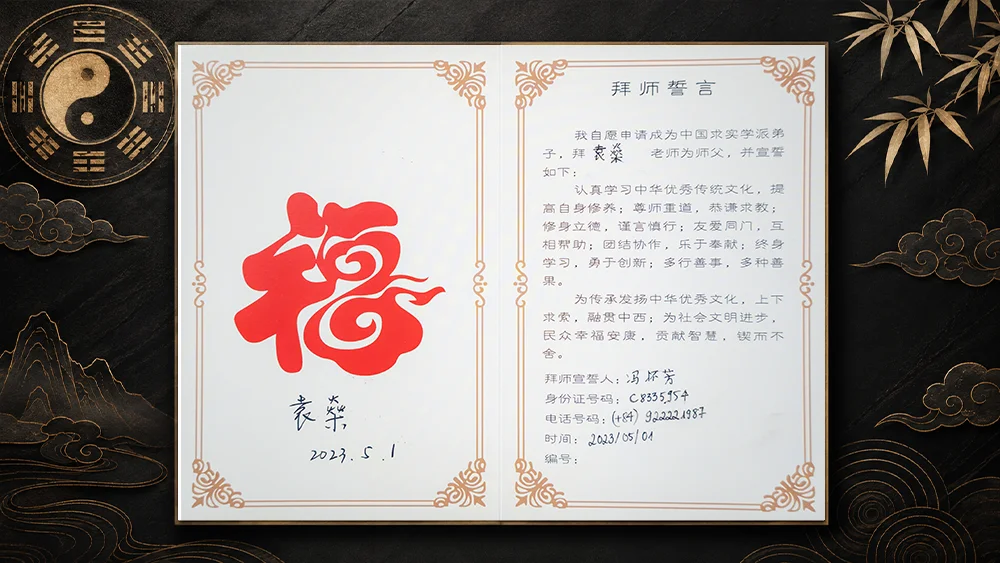 福
袁燊
2023.5.1
拜师誓言
我自愿申请成为中国求实学派弟
子，拜 袁燊 老师为师父，并宣誓
如下：
认真学习中华优秀传统文化，提
高自身修养；尊师重道，恭谦求教；
修身立德，谨言慎行；友爱同门，互
相帮助；团结协作，乐于奉献；终身
学习，勇于创新；多行善事，多种善
果。
为传承发扬中华优秀文化，上下
求索，融贯中西；为社会文明进步，
民众幸福安康，贡献智慧，锲而不
舍。
拜师宣誓人：冯怀芳
身份证号码：C8335954
电话号码：(+84) 922221987
时间：2023/05/01
编号：